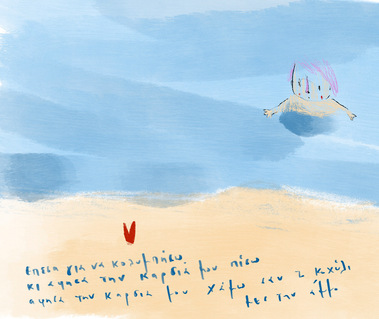 έπεσα για να κολυμπήσω.
κι άφησα την καρδιά μου πίσω
άφησα την καρδιά μου χάμω σαν το κοχύλι
μες την άμμο